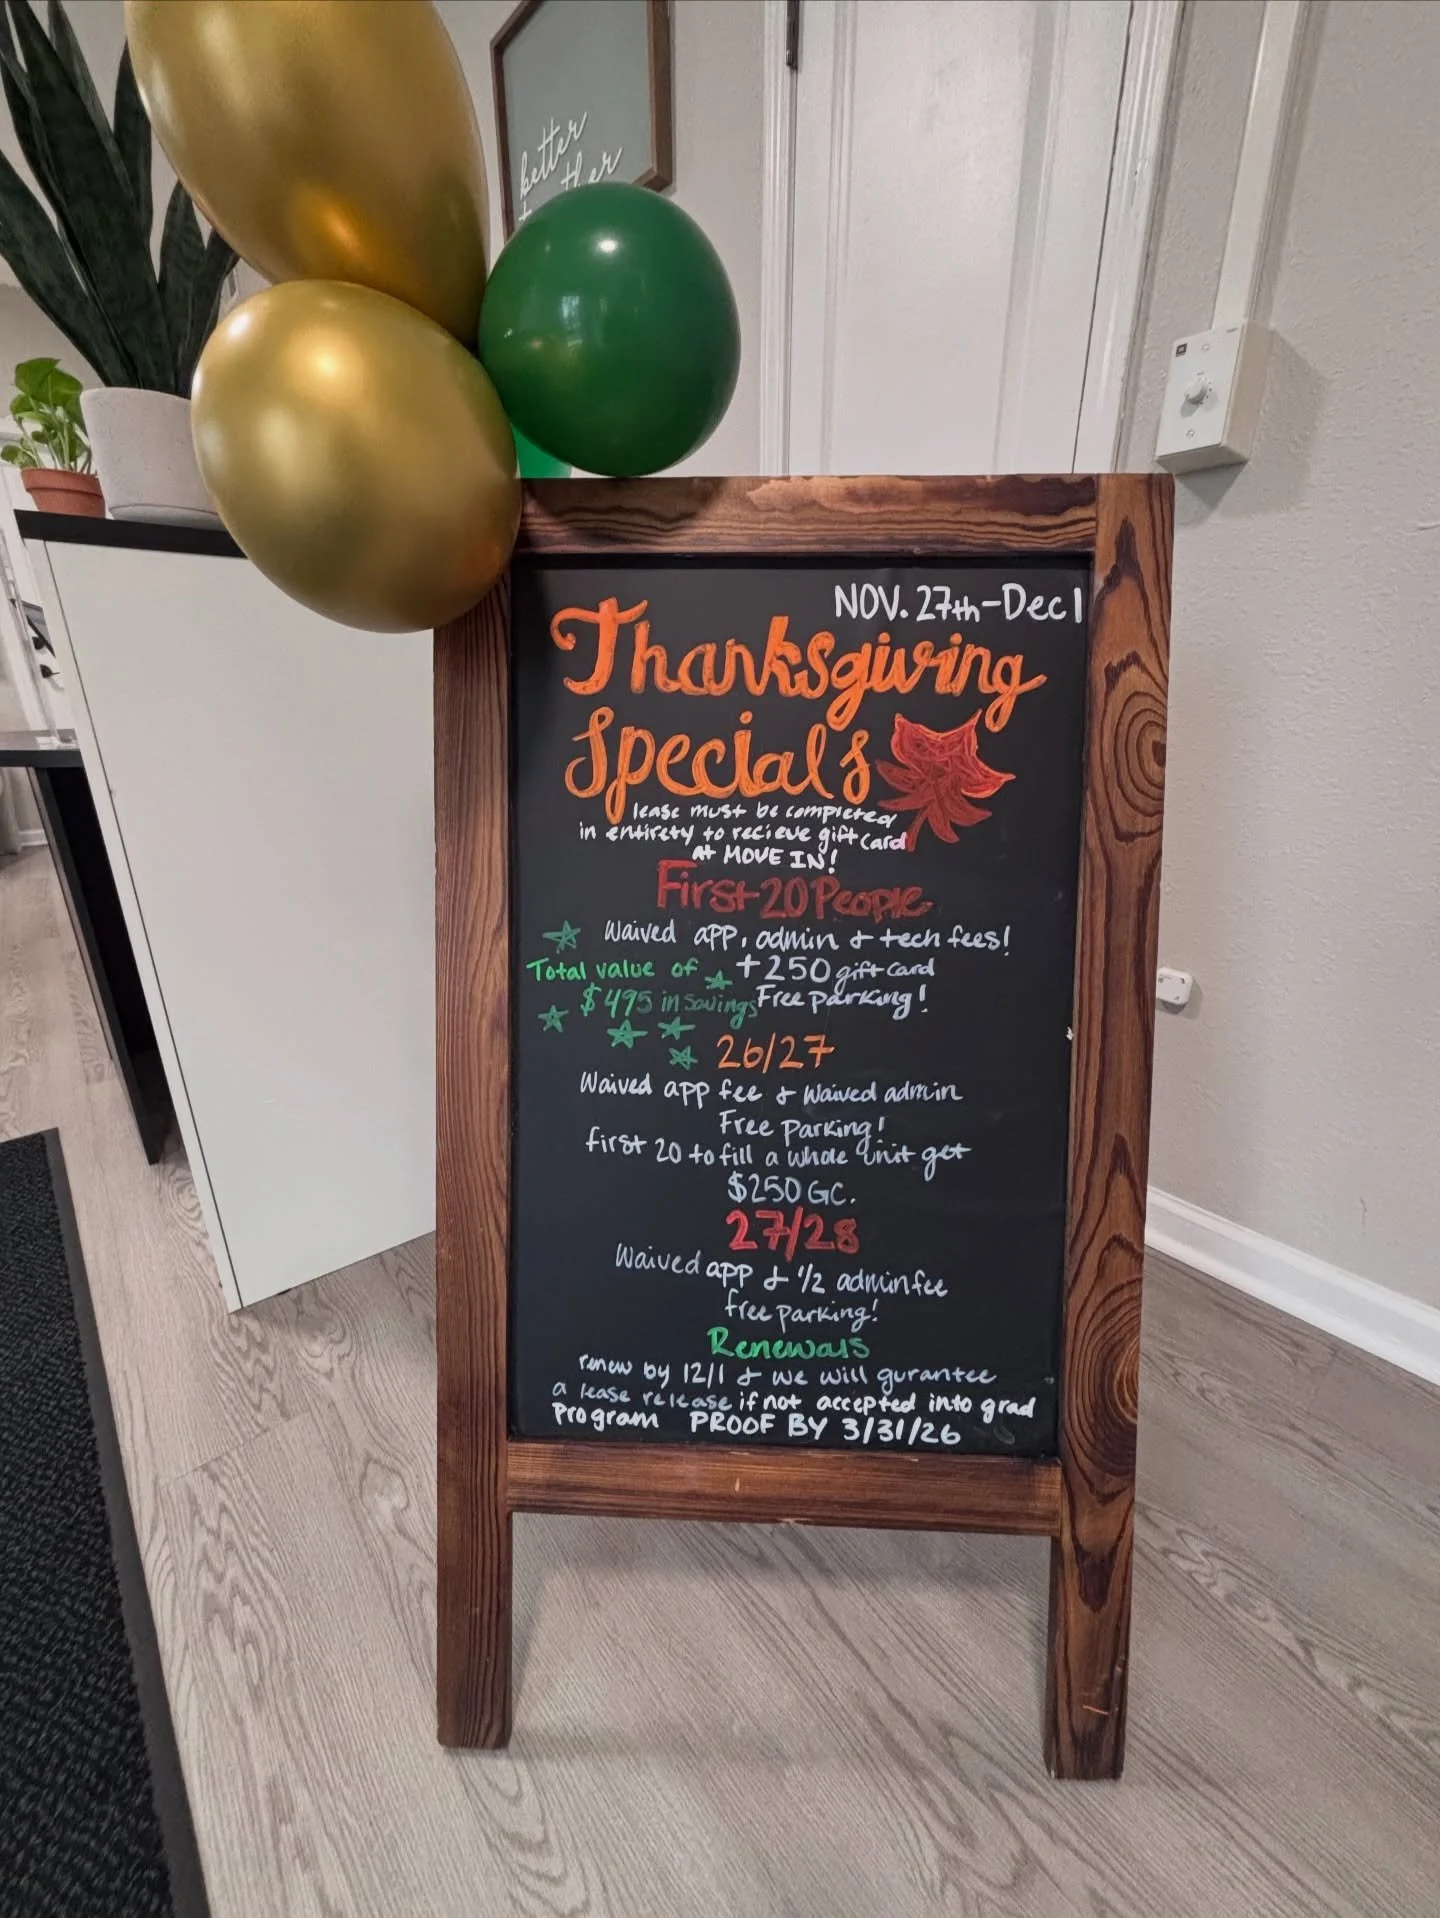 better
together
NOV. 27th-Dec 1
Thanksgiving
Specials
lease must be completed
in entirety to recieve gift card
at MOVE IN!
First 20 People
Waived app, admin & tech fees!
Total value of
$495 in savings
+250 gift card
Free parking!
26/27
Waived app fee & waived admin
Free parking!
first 20 to fill a whole unit get
$250 GC.
27/28
Waived app & 1/2 admin fee
free parking!
Renewals
renew by 12/1 & we will gurantee
a lease release if not accepted into grad
program PROOF BY 3/31/26